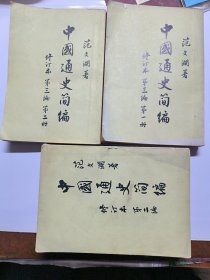 范文瀾著
中國通史简编
修订本 第三编 第二册
范文瀾著
中國通史简编
修订本 第三编 第一册
范文瀾著
中國通史简编
修订本 第二编